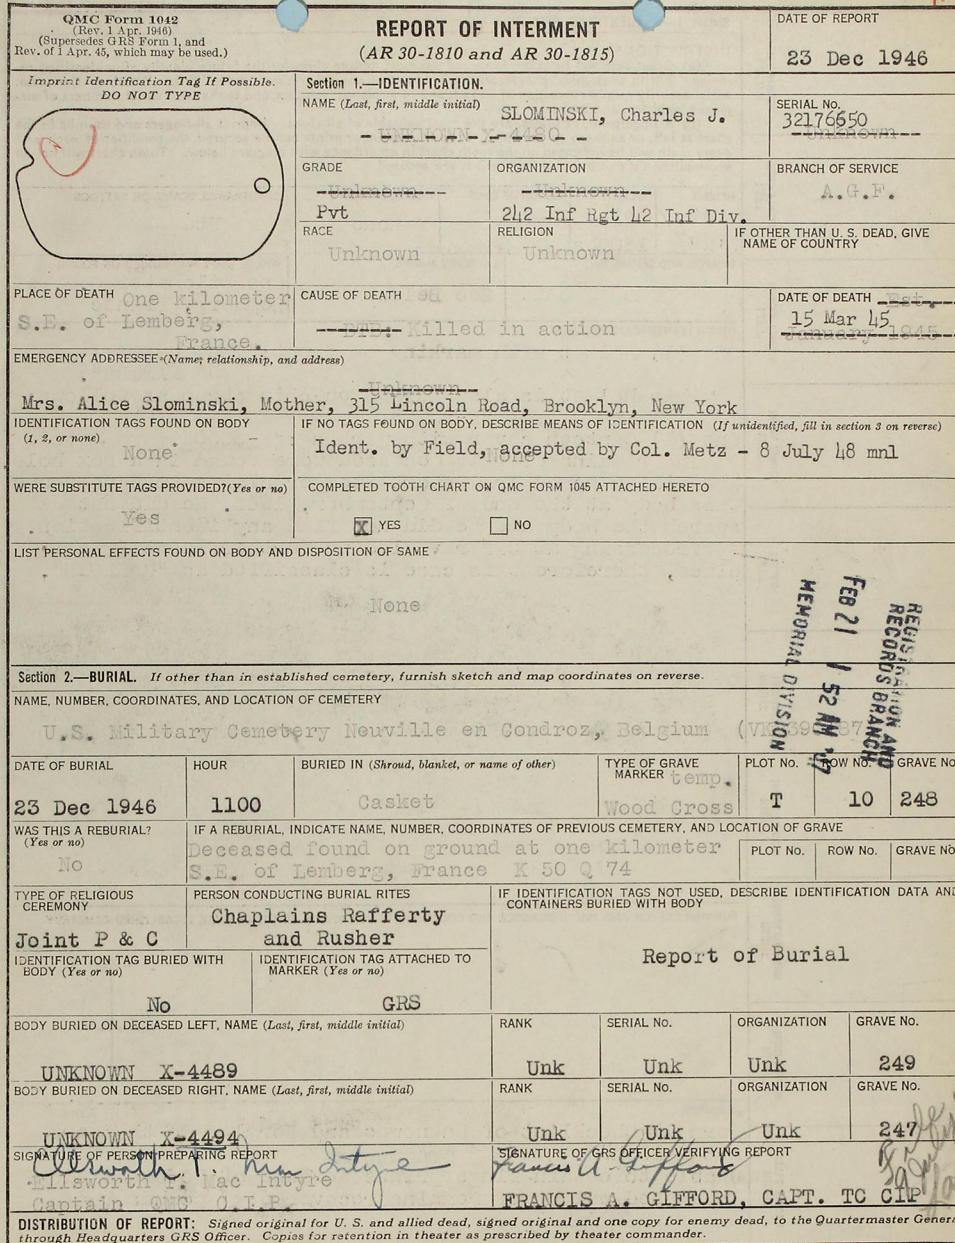 QMC Form 1042
(Rev. 1 Apr. 1946)
(Supersedes GRS Form 1, and
Rev. of 1 Apr. 45, which may be used.)
REPORT OF INTERMENT
(AR 30-1810 and AR 30-1815)
DATE OF REPORT
23 Dec 1946
Imprint Identification Tag If Possible.
DO NOT TYPE
Section 1.—IDENTIFICATION.
NAME (Last, first, middle initial)
SLOMINSKI, Charles J.
UNKNOWN X-4480
SERIAL No.
32176650
Unknown
GRADE
Unknown
Pvt
ORGANIZATION
Unknown
242 Inf Rgt 42 Inf Div.
BRANCH OF SERVICE
A.G.F.
RACE
Unknown
RELIGION
Unknown
IF OTHER THAN U. S. DEAD, GIVE
NAME OF COUNTRY
PLACE OF DEATH One kilometer
S.E. of Lemberg,
France.
CAUSE OF DEATH
Killed in action
DATE OF DEATH Est.
15 Mar 45
January 1945
EMERGENCY ADDRESSEE (Name, relationship, and address)
Unknown
Mrs. Alice Slominski, Mother, 315 Lincoln Road, Brooklyn, New York
IDENTIFICATION TAGS FOUND ON BODY
(1, 2, or none)
None
IF NO TAGS FOUND ON BODY, DESCRIBE MEANS OF IDENTIFICATION (If unidentified, fill in section 3 on reverse)
Ident. by Field, accepted by Col. Metz - 8 July 48 mnl
None
WERE SUBSTITUTE TAGS PROVIDED? (Yes or no)
Yes
COMPLETED TOOTH CHART ON QMC FORM 1045 ATTACHED HERETO
X YES NO
LIST PERSONAL EFFECTS FOUND ON BODY AND DISPOSITION OF SAME
None
REGISTRATION AND
RECORDS BRANCH
FEB 21 1 52 '47
MEMORIAL DIVISION
Section 2.—BURIAL. If other than in established cemetery, furnish sketch and map coordinates on reverse.
NAME, NUMBER, COORDINATES, AND LOCATION OF CEMETERY
U.S. Military Cemetery Neuville en Condroz, Belgium
DATE OF BURIAL
23 Dec 1946
HOUR
1100
BURIED IN (Shroud, blanket, or name of other)
Casket
TYPE OF GRAVE
MARKER temp.
Wood Cross
PLOT No.
T
ROW No.
10
GRAVE No
248
WAS THIS A REBURIAL?
(Yes or no)
No
IF A REBURIAL, INDICATE NAME, NUMBER, COORDINATES OF PREVIOUS CEMETERY, AND LOCATION OF GRAVE
Deceased found on ground at one kilometer
S.E. of Lemberg, France K 50 Q 74
PLOT No. ROW No. GRAVE No
TYPE OF RELIGIOUS
CEREMONY
Joint P & C
PERSON CONDUCTING BURIAL RITES
Chaplains Rafferty
and Rusher
IF IDENTIFICATION TAGS NOT USED, DESCRIBE IDENTIFICATION DATA AND
CONTAINERS BURIED WITH BODY
Report of Burial
IDENTIFICATION TAG BURIED WITH
BODY (Yes or no)
No
IDENTIFICATION TAG ATTACHED TO
MARKER (Yes or no)
GRS
BODY BURIED ON DECEASED LEFT, NAME (Last, first, middle initial)
UNKNOWN X-4489
RANK
Unk
SERIAL No.
Unk
ORGANIZATION
Unk
GRAVE No.
249
BODY BURIED ON DECEASED RIGHT, NAME (Last, first, middle initial)
UNKNOWN X-4494
RANK
Unk
SERIAL No.
Unk
ORGANIZATION
Unk
GRAVE No.
247
SIGNATURE OF PERSON PREPARING REPORT
Ellsworth T. Mac Intyre
Ellsworth T. Mac Intyre
Captain QMC C.I.P.
SIGNATURE OF GRS OFFICER VERIFYING REPORT
Francis A. Gifford
FRANCIS A. GIFFORD, CAPT. TC CIP
DISTRIBUTION OF REPORT: Signed original for U. S. and allied dead, signed original and one copy for enemy dead, to the Quartermaster Genera
through Headquarters GRS Officer. Copies for retention in theater as prescribed by theater commander.